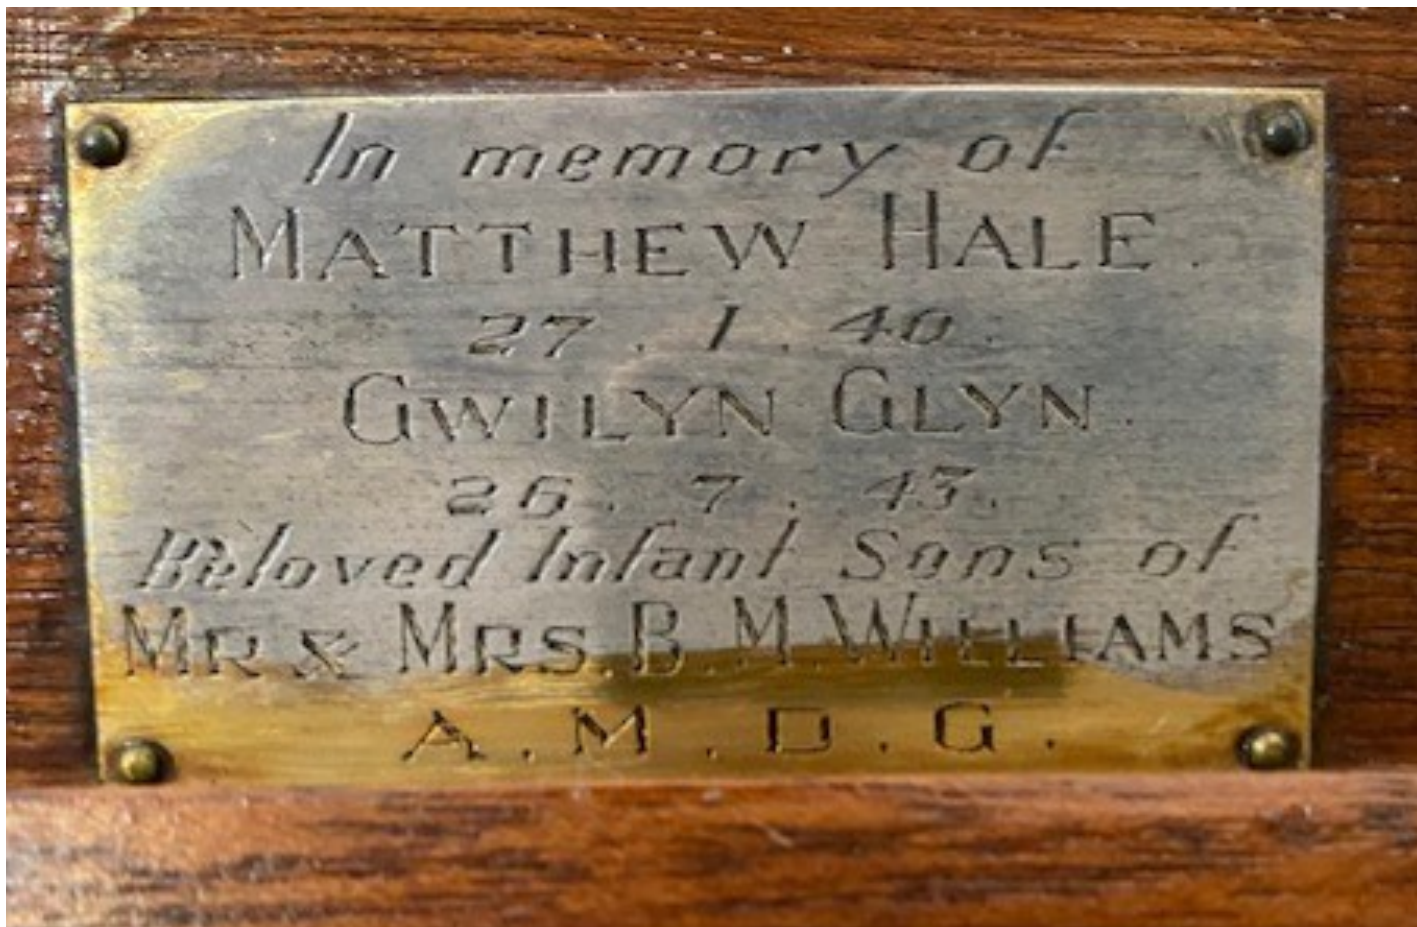 In memory of
MATTHEW HALE.
27.1.40.
GWILYN GLYN.
26.7.43.
Beloved Infant Sons of
MR & MRS. B.M. WILLIAMS
A.M.D.G.